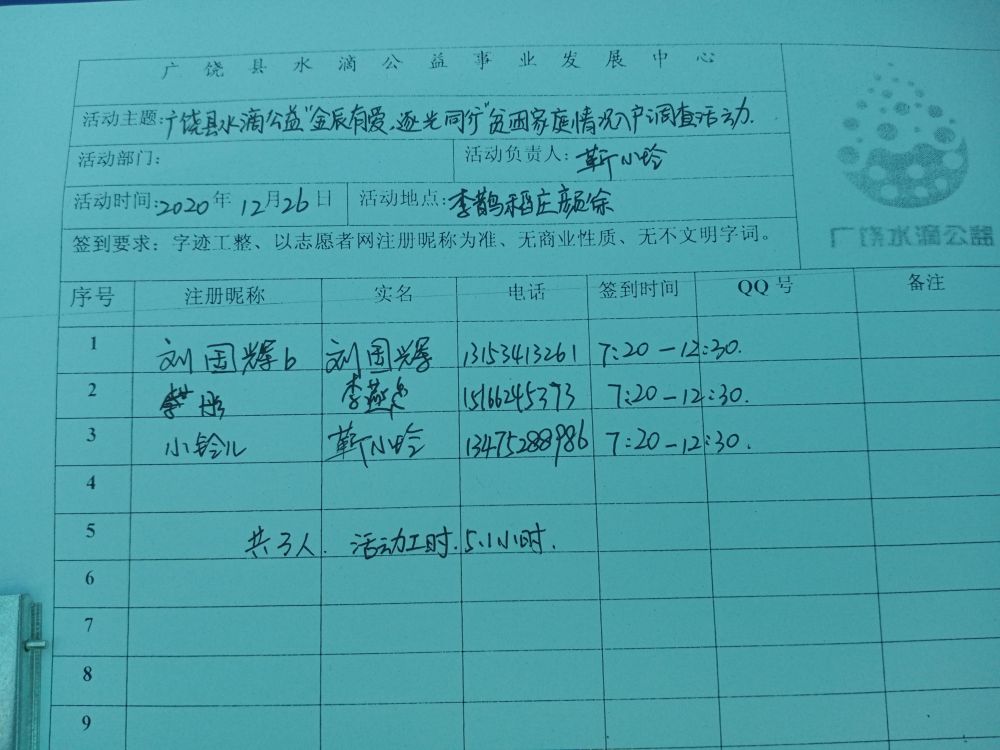 广饶县水滴公益事业发展中心
活动主题:广饶县水滴公益"金辰有爱、逐光同行"贫困家庭情况入户调查活动.
活动部门: 活动负责人: 靳小玲
活动时间:2020年12月26日 活动地点:李鹊稻庄颜徐
广饶水滴公益
签到要求: 字迹工整、以志愿者网注册昵称为准、无商业性质、无不文明字词。
序号 注册昵称 实名 电话 签到时间 QQ号 备注
1 刘国辉b 刘国辉 13153413261 7:20-12:30.
2 李燕 15166245373 7:20-12:30.
3 小铃儿 靳小玲 13475288986 7:20-12:30.
4
5 共3人. 活动工时.5.1小时.
6
7
8
9